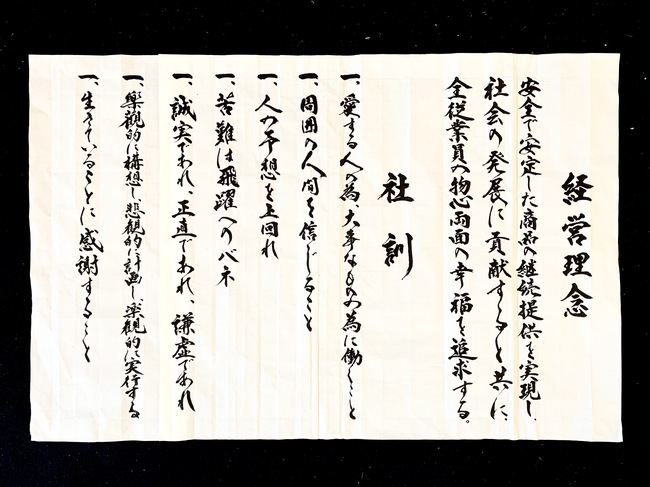 経営理念
安全で安定した商品の継続提供を実現し、
社会の発展に貢献すると共に、
全従業員の物心両面の幸福を追求する。
社訓
一、愛する人の為、大事なものの為に働くこと
一、周囲の人間を信じること
一、人の予想を上回れ
一、苦難は飛躍へのバネ
一、誠実であれ、正直であれ、謙虚であれ
一、楽観的に構想し、悲観的に計画し、楽観的に実行する
一、生きていることに感謝すること